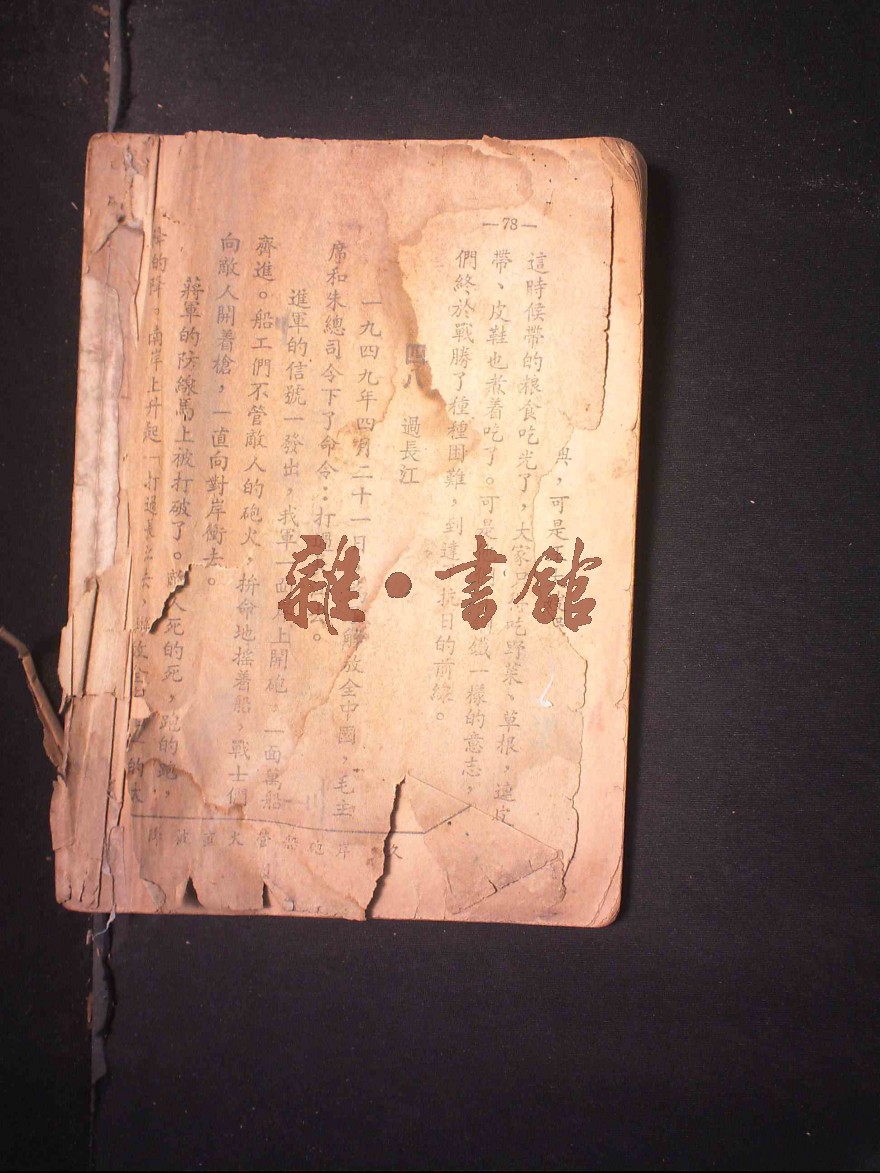 —78—
與，可是
這時候帶的糧食吃光了，大家只吃野菜、草根，連皮
帶、皮鞋也煮着吃了。可是鐵一樣的意志，
們終於戰勝了種種困難，到達抗日的前線。
四八 過長江
一九四九年四月二十一日，解放全中國，毛主
席和朱總司令下了命令：打過去。
進軍的信號一發出，我軍一面上開砲，一面萬船
齊進。船工們不管敵人的砲火，拚命地搖着船，戰士們
向敵人開着槍，一直向對岸衝去。
蔣軍的防線馬上被打破了。敵人死的死，跑的跑，
的降。南岸上升起「打過長江去，解放全的大
久岸砲船管火
雜·書館